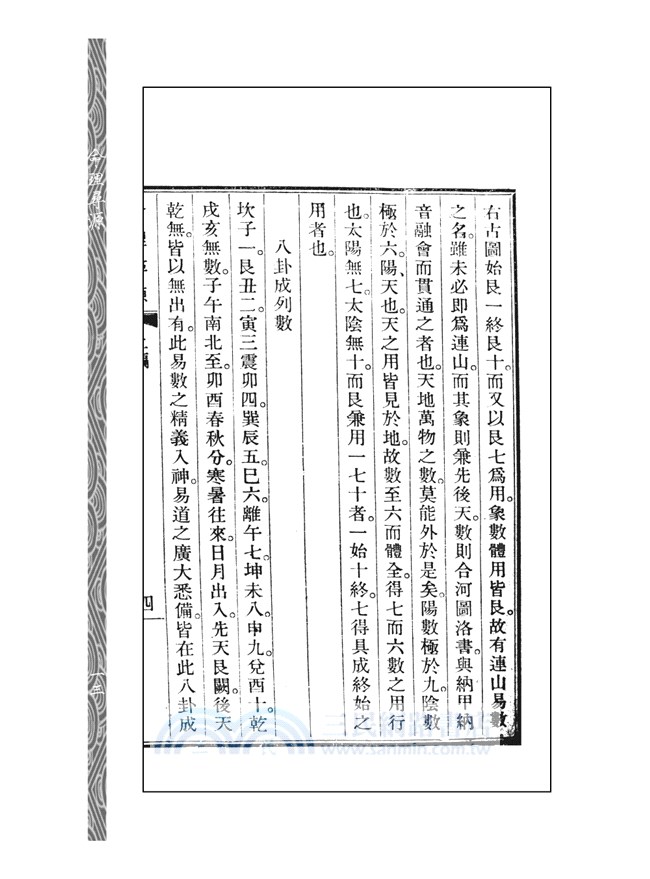 右古圖始艮一終艮十。而又以艮七爲用。象數體用皆艮。故有連山易數
之名。雖未必即爲連山。而其象則兼先後天。數則合河圖洛書。與納甲納
音融會而貫通之者也。天地萬物之數。莫能外於是矣。陽數極於九。陰數
極於六。陽、天也。天之用皆見於地。故數至六而體全。得七而六數之用行
也。太陽無七。太陰無十。而艮兼用一七十者。一始十終。七得具成終始之
用者也。
八卦成列數
坎子一。艮丑二。寅三震卯四。巽辰五。巳六。離午七。坤未八。申九。兌酉十。乾
戌亥無數。子午南北至。卯酉春秋分。寒暑往來。日月出入。先天艮闕。後天
乾無。皆以無出有。此易數之精義入神。易道之廣大悉備。皆在此八卦成
四
www.sanmin.com.tw